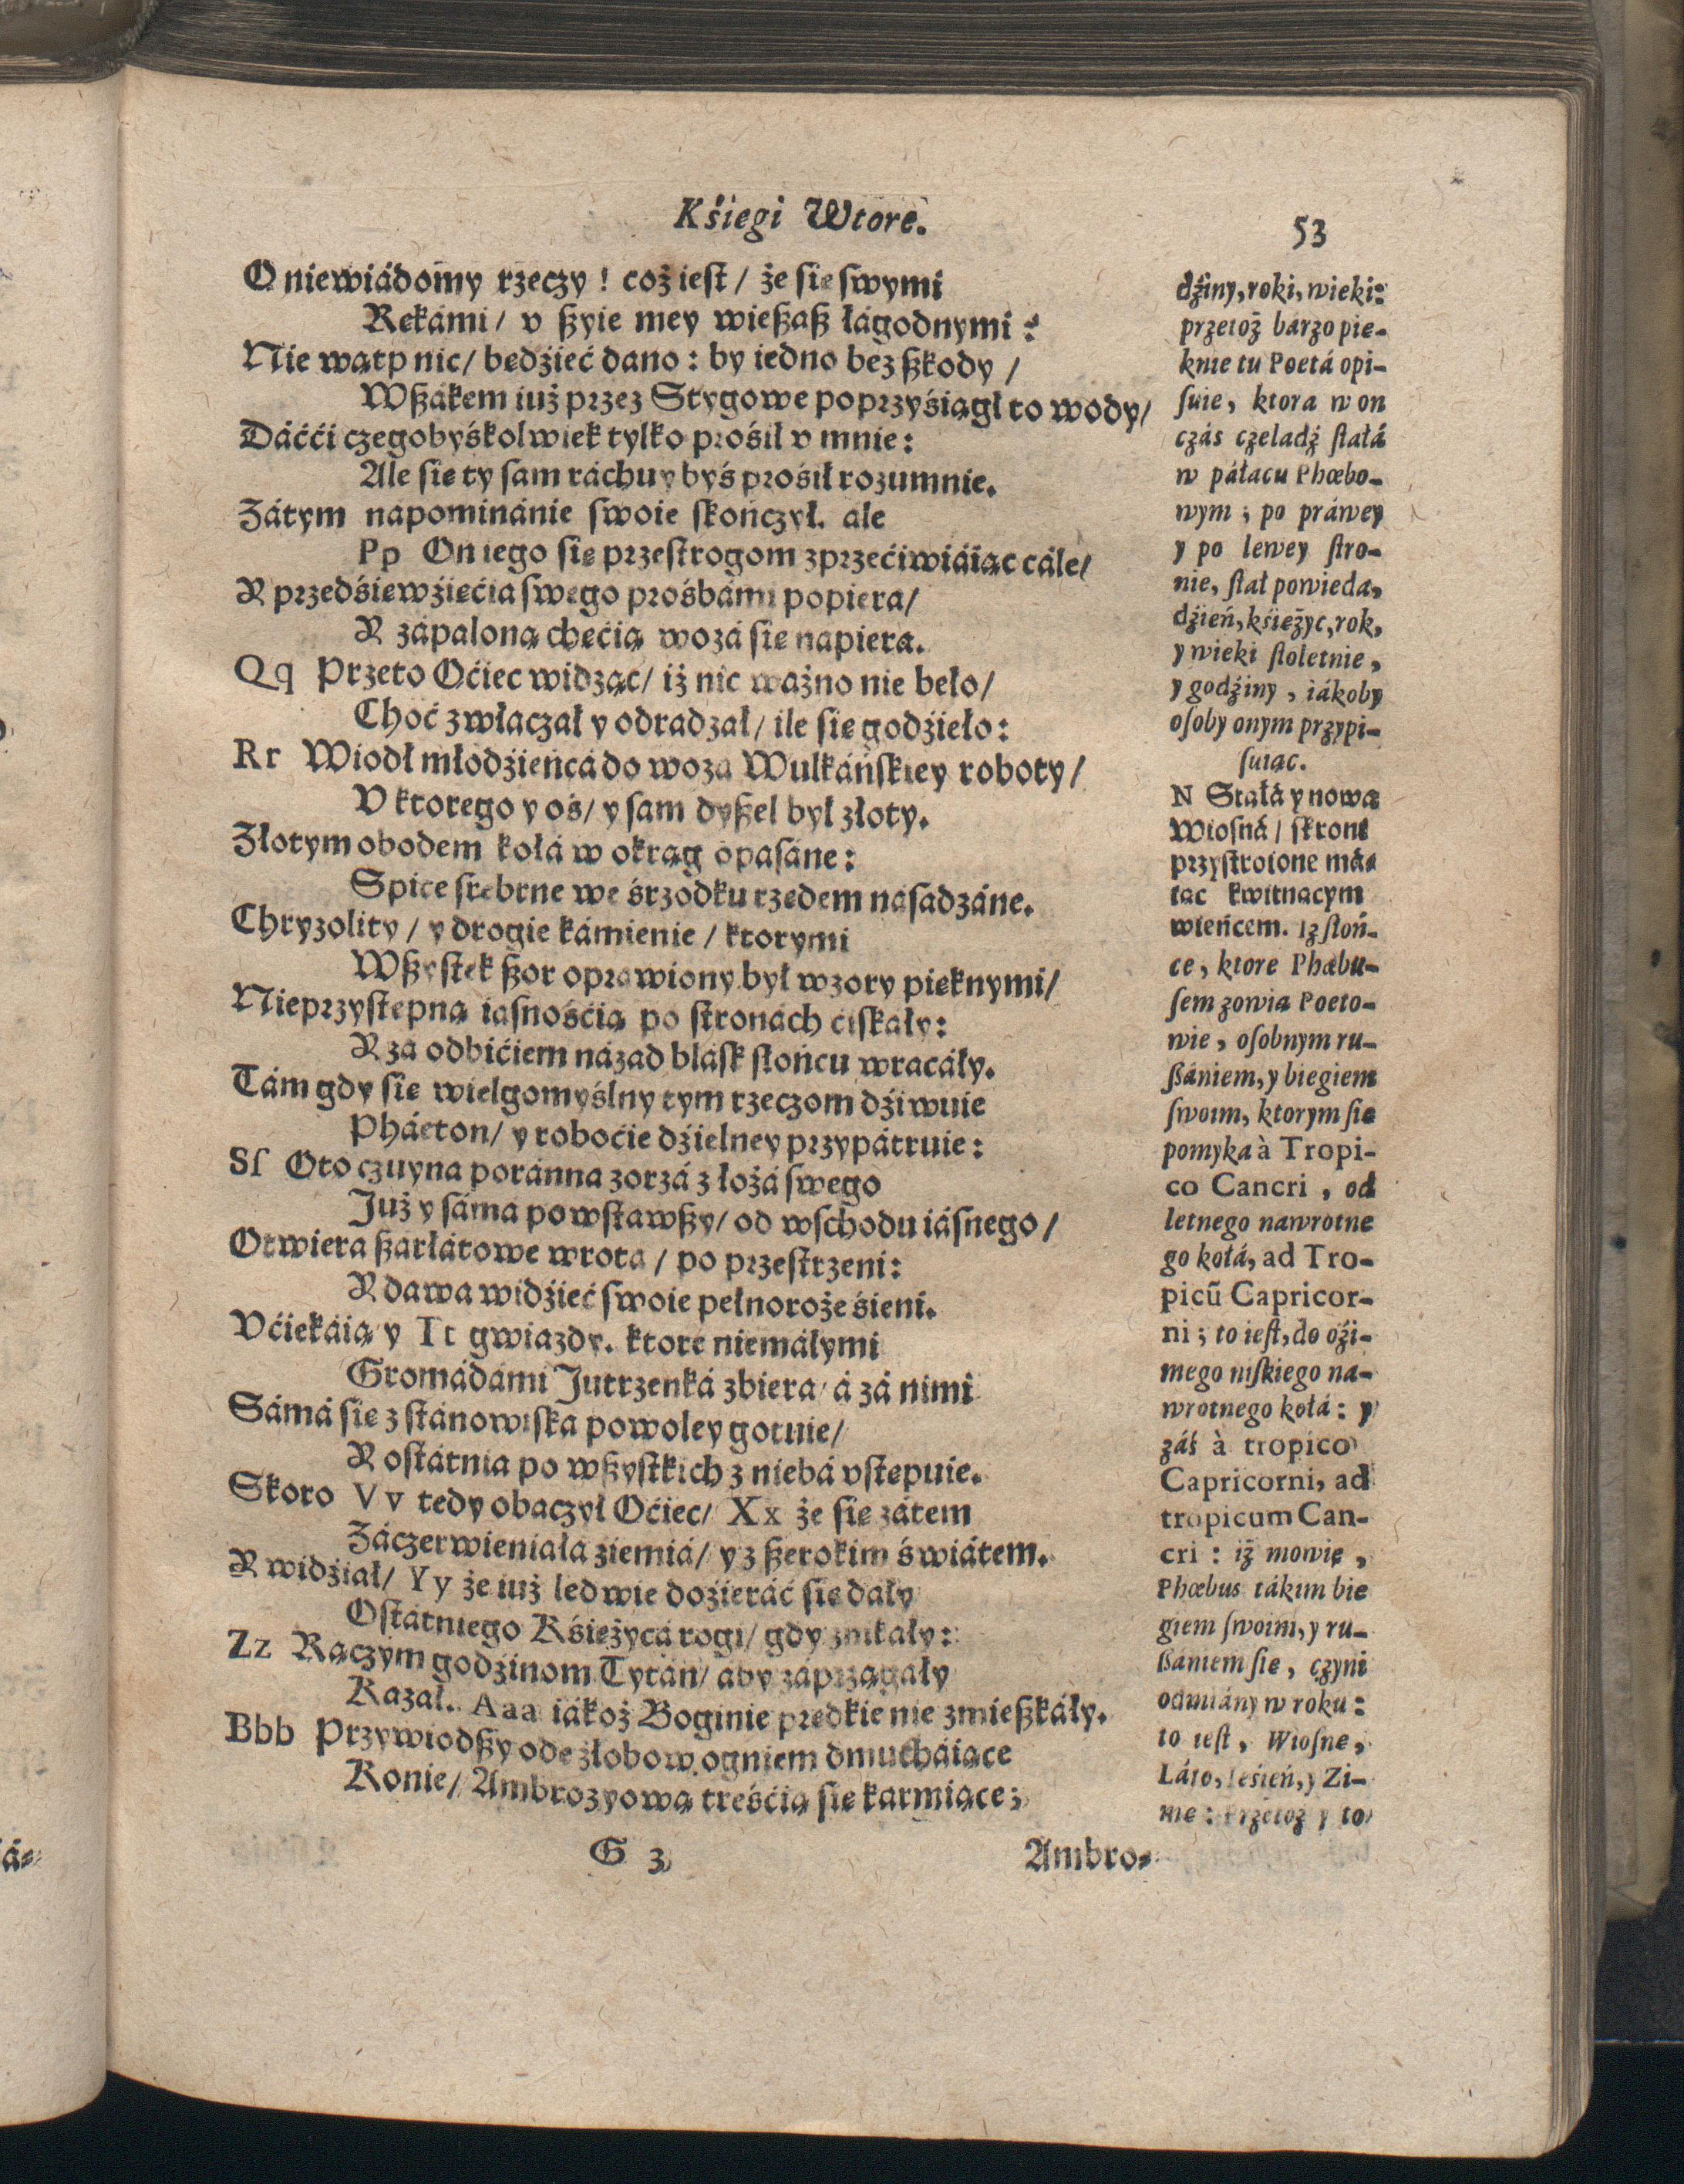 Kśięgi Wtore.
53
O niewiádomy rzeczy! coż iest/ że się swymi
Rękámi/ v ßyie mey wießaß łágodnymi?
Nie wątp nic/ będźieć dano: by iedno bez ßkody/
Wßákem iuż przez Stygowe poprzyśiągł to wody/
Dáćći czegobyśkolwiek tylko prośił v mnie:
Ale się ty sam ráchuy byś prośił rozumnie.
Zátym napominánie swoie skończył. ale
Pp On iego się przestrogom zprzećiwiáiąc cále/
Y przedśięwźięćia swego prośbámi popiera/
Y zápaloną chęćią wozá się napiera.
Qq Przeto Oćiec widząc/ iż nic ważno nie beło/
Choć zwłaczał y odradzał/ ile się godźieło:
Rr Wiodł młodźieńcá do woza Wulkáńskiey roboty/
V ktorego y oś/ y sam dyßel był złoty.
Złotym obodem kołá w okrąg opasáne:
Spice srebrne we śrzodku rzędem násadzáne.
Chryzolity/ y drogie kámienie/ ktorymi
Wßystek ßor oprawiony był wzory pięknymi/
Nieprzystępną iasnośćią po stronách ćiskały:
Y za odbićiem názad blásk słońcu wracáły.
Tám gdy się wielgomyślny tym rzeczom dźiwuie
Pháeton/ y roboćie dźielney przypátruie:
Ss Oto czuyna poránna zorzá z łożá swego
Już y sáma powstawßy/ od wschodu iásnego/
Otwiera ßarłátowe wrota/ po przestrzeni:
Y dawa widźieć swoie pełnoroże śieni.
Vćiekáią y Tt gwiazdy. ktore niemáłymi
Gromádámi Jutrzenká zbiera/ á zá nimi
Sámá się z stánowiska powoley gotuie/
Y ostátnia po wßystkich z niebá vstępuie.
Skoro Vv tedy obaczył Oćiec/ Xx że się zátem
Záczerwieniała ziemiá/ y z ßerokim świátem.
Y widźiał/ Yy że iuż ledwie doźieráć się dały
Ostátniego Kśiężycá rogi/ gdy znikały:
Zz Rączym godźinom Tytán/ aby záprzągały
Kazał. Aaa iákoż Boginie prędkie nie zmießkáły.
Bbb Przywiodßy ode żłobow ogniem dmucháiące
Konie/ Ambrozyową treśćią się karmiące;
G 3
Ambro-
dźiny, roki, wieki:
przetoż bárzo pię-
knie tu Poetá opi-
suie, ktora w on
czás czeladź stałá
w páłacu Phœbo-
wym; po práwey
y po lewey stro-
nie, stał powieda,
dźień, kśiężyc, rok,
y wieki stoletnie,
y godźiny, iákoby
osoby onym przypi-
suiąc.
N Stałá y nowa
Wiosná/ skroni
przystroione má-
iąc kwitnącym
wieńcem. Iż słoń-
ce, ktore Phœbu-
sem zowią Poeto-
wie, osobnym ru-
ßániem, y biegiem
swoim, ktorym się
pomyka à Tropi-
co Cancri, od
letnego nawrotne
go kołá, ad Tro-
picũ Capricor-
ni; to iest, do oźi-
mego niskiego na-
wrotnego kołá: y
záś à tropico
Capricorni, ad
tropicum Can-
cri: iż mowię,
Phœbus tákim bie
giem swoim, y ru-
ßániem się, czyni
odmiány w roku:
to iest, Wiosnę,
Láto, Ieśień, y Zi-
mę: Przetoż y to